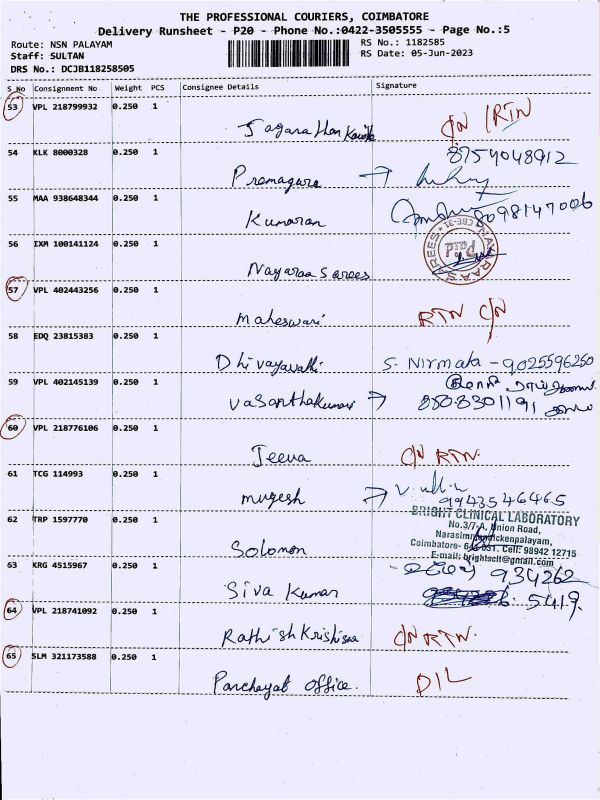 THE PROFESSIONAL COURIERS, COIMBATORE
Delivery Runsheet - P20 - Phone No.:0422-3505555 - Page No.:5
Route: NSN PALAYAM
RS No.: 1182585
Staff: SULTAN
RS Date: 05-Jun-2023
DRS No.: DCJB118258505
S No Consignment No Weight PCS Consignee Details Signature
53 VPL 218799932 0.250 1
C/N RTN
54 KLK 8000328 0.250 1
8754048912
Premagura
55 MAA 938648344 0.250 1
8098147006
Kumaran
56 IXM 100141124 0.250 1
Nayaraa Sarees
57 VPL 402443256 0.250 1
Maheswari RTN C/N
58 EDQ 23815383 0.250 1
Dhivayavathi S. Nirmala - 9025596250
59 VPL 402145139 0.250 1
Vasanthakumari 8508301191
60 VPL 218776106 0.250 1
Jeeva C/N RTN.
61 TCG 114993 0.250 1
Mugesh 9943546465
62 TRP 1597770 0.250 1
BRIGHT CLINICAL LABORATORY
No.3/7-A, Union Road,
Coimbatore- 641 031. Cell: 98942 12715
E-mail: brightscit@gmail.com
Solomon
63 KRG 4515967 0.250 1
934262
Siva Kumar 5419.
64 VPL 218741092 0.250 1
Rathish Krishna C/N RTN.
65 SLM 321173588 0.250 1
Panchayat Office. DIL